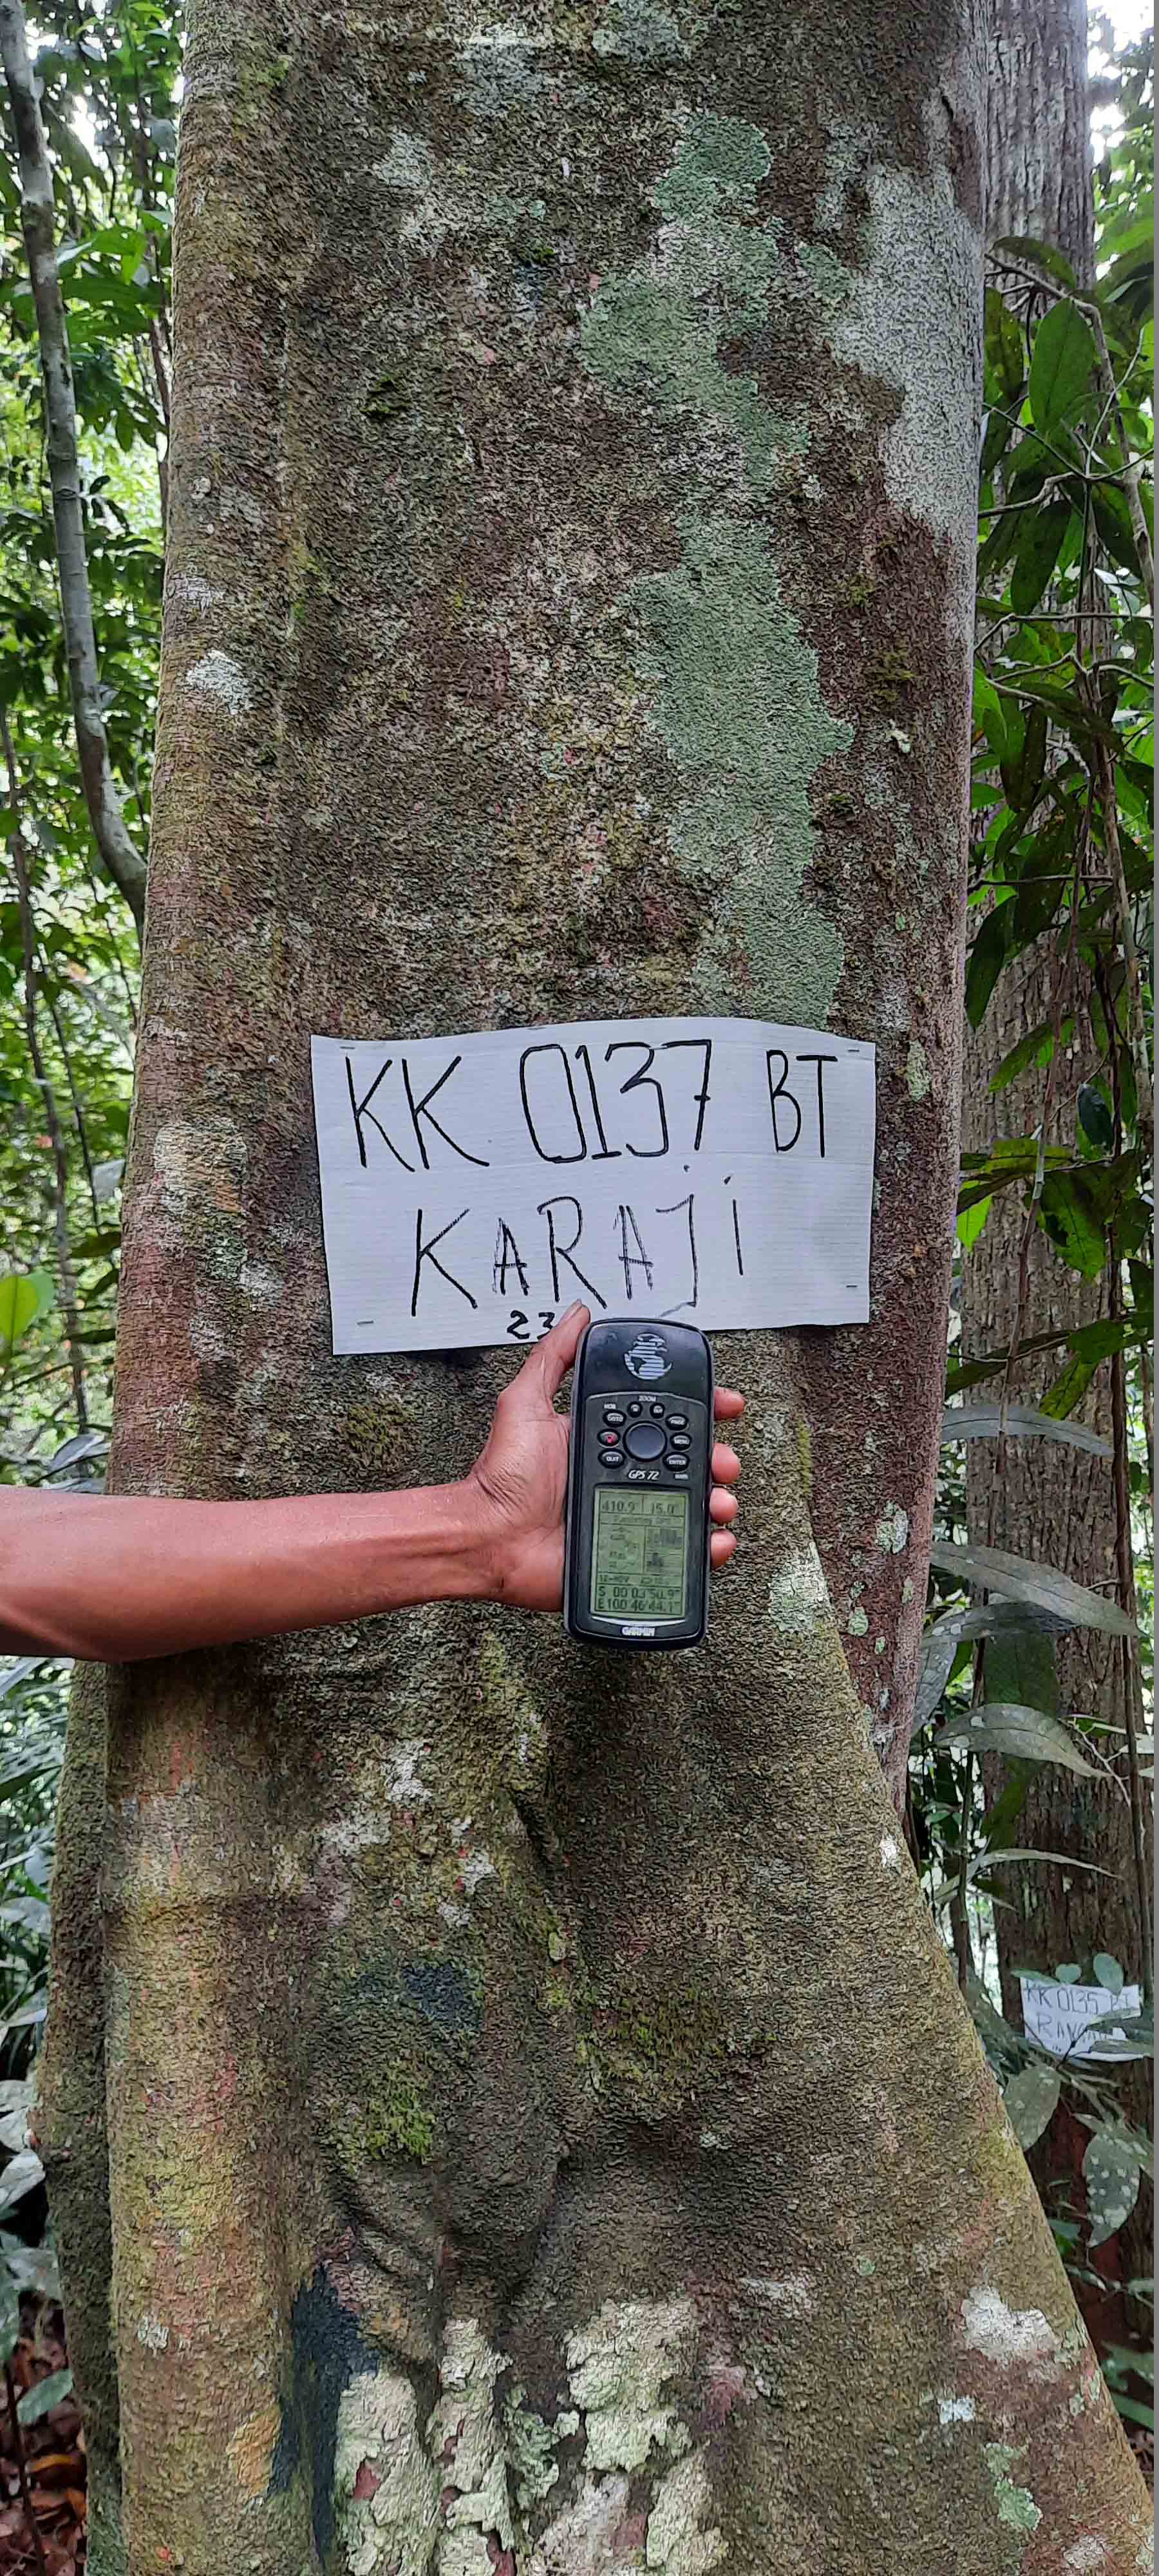 KK 0137 BT
KARAJi
23
ZOOM
GOTO
PAGE
MENU
QUIT
ENTER
GPS 72
410.9 15.0
S 00°03'50.9"
E100°46'44.1"
GARMIN
KK 0135 BT